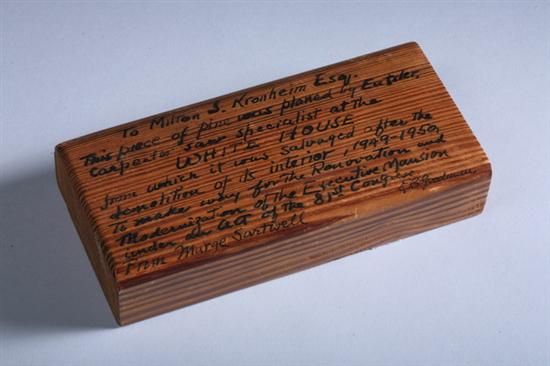 To Milton S. Kronheim Esq.
This piece of pine was planed by
carpenter saw specialist at the
WHITE HOUSE
from which it was salvaged after the
demolition of its interior 1949-1950
To make way for the Renovation and
Modernization of the Executive Mansion
under an Act of the 81st Congress
From Marge Sartwell